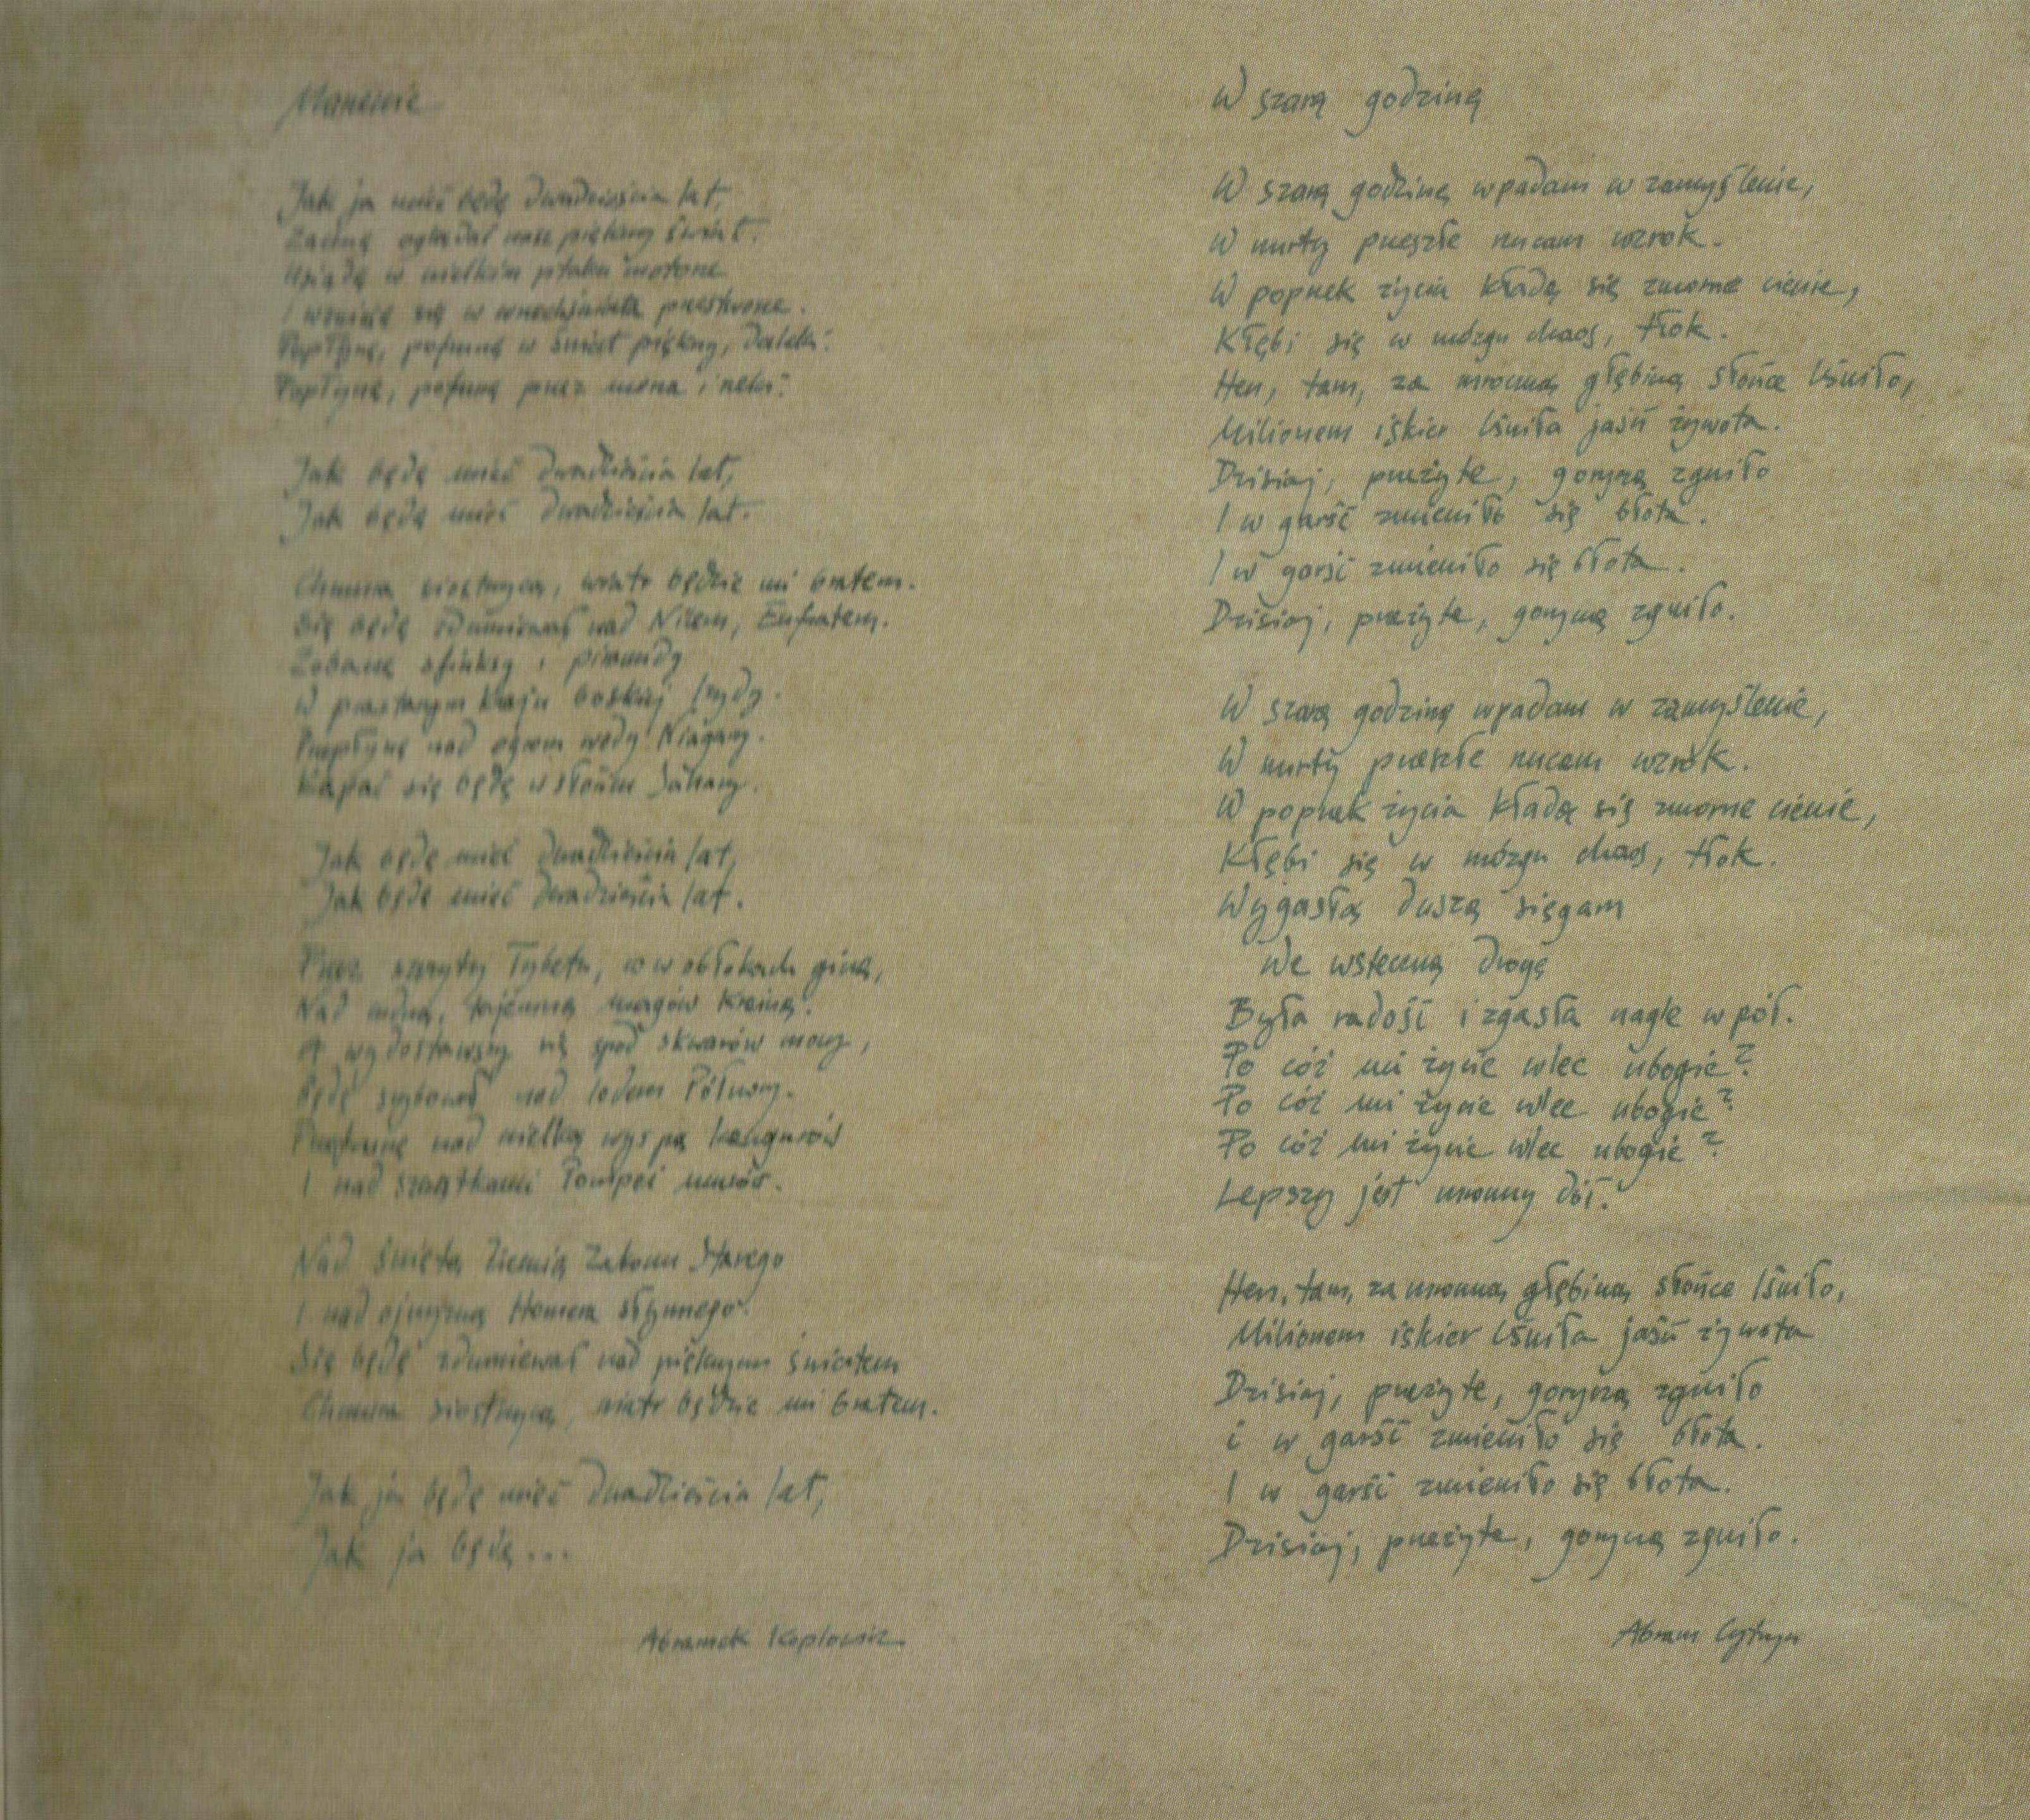 Marzenie
Jak ja mieć będę dwadzieścia lat,
Zacznę oglądać nasz piękny świat.
Usiądę w wielkim ptaku motorze
I wzniosę się w wszechświata przestworze.
Popłynę, pofrunę w świat piękny, daleki.
Popłynę, pofrunę przez morza i rzeki.
Jak będę mieć dwadzieścia lat,
Jak będę mieć dwadzieścia lat.
Chmura siostrzycą, wiatr będzie mi bratem.
Się będę zdumiewał nad Nilem, Eufratem.
Zobaczę sfinksy i piramidy
W prastarym kraju boskiej Izydy.
Przepłynę nad ogrom wody Niagary.
Kąpać się będę w słońcu Sahary.
Jak będę mieć dwadzieścia lat,
Jak będę mieć dwadzieścia lat.
Przez szczyty Tybetu, co w obłokach giną,
Nad cudną, tajemną magów krainą.
A wydostawszy się spod skwarów mocy,
Będę szybował nad lodem Północy.
Przefrunę nad wielką wyspą kangurów
I nad szczątkami Pompei murów.
Nad świętą Ziemią Zakonu Starego
I nad ojczyzną Homera słynnego.
Się będę zdumiewał nad pięknym światem
Chmura siostrzycą, wiatr będzie mi bratem.
Jak ja będę mieć dwadzieścia lat,
Jak ja będę...
Abramek Koplowicz
W szarą godzinę
W szarą godzinę wpadam w zamyślenie,
W nurty przeszłe rzucam wzrok.
W poprzek życia kładą się zmorne cienie,
Kłębi się w mózgu chaos, tłok.
Hen, tam, za mroczną głębiną słońce lśniło,
Milionem iskier lśniła jaśń żywota.
Dzisiaj, przeżyte, goryczą zgniło
I w garść zmieniło się błota.
I w garść zmieniło się błota.
Dzisiaj, przeżyte, goryczą zgniło.
W szarą godzinę wpadam w zamyślenie,
W nurty przeszłe rzucam wzrok.
W poprzek życia kładą się zmorne cienie,
Kłębi się w mózgu chaos, tłok.
Wygasłą duszą sięgam
We wsteczną drogę
Była radość i zgasła nagle wpół.
Po cóż mi życie wlec ubogie?
Po cóż mi życie wlec ubogie?
Po cóż mi życie wlec ubogie?
Lepszy jest mroczny dół.
Hen, tam, za mroczną głębiną słońce lśniło,
Milionem iskier lśniła jaśń żywota
Dzisiaj, przeżyte, goryczą zgniło
i w garść zmieniło się błota.
I w garść zmieniło się błota.
Dzisiaj, przeżyte, goryczą zgniło.
Abram Cytryn